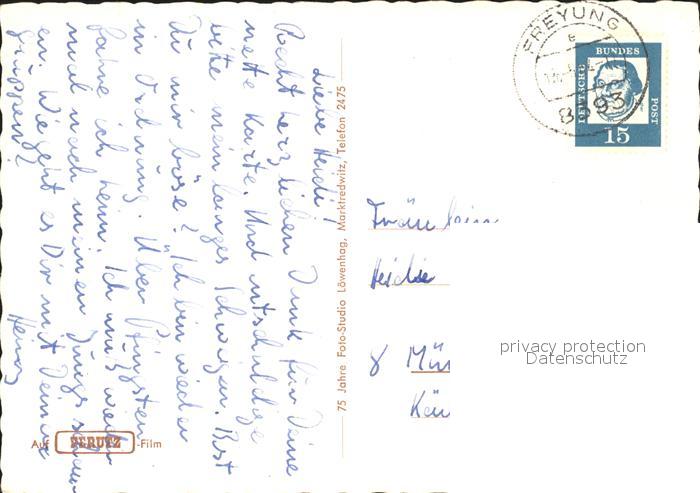 Liebe Heidi!
Recht herzlichen Dank für Deine
nette Karte. Und entschuldige
bitte mein langes Schweigen. Bist
Du mir böse? Ich bin wieder
in Ordnung. Über Pfingsten
fahre ich heim. Ich muß wieder
mal nach meinen Jungs schau
en. Wie geht es Dir mit Deinen
Gruppen?
Heinz
75 Jahre Foto-Studio Löwenhag, Marktredwitz, Telefon 2475
Auf PERUTZ -Film
FREYUNG
8393
DEUTSCHE
BUNDES
POST
15
Fräulein
Heidie
8 Mün
privacy protection
Datenschutz